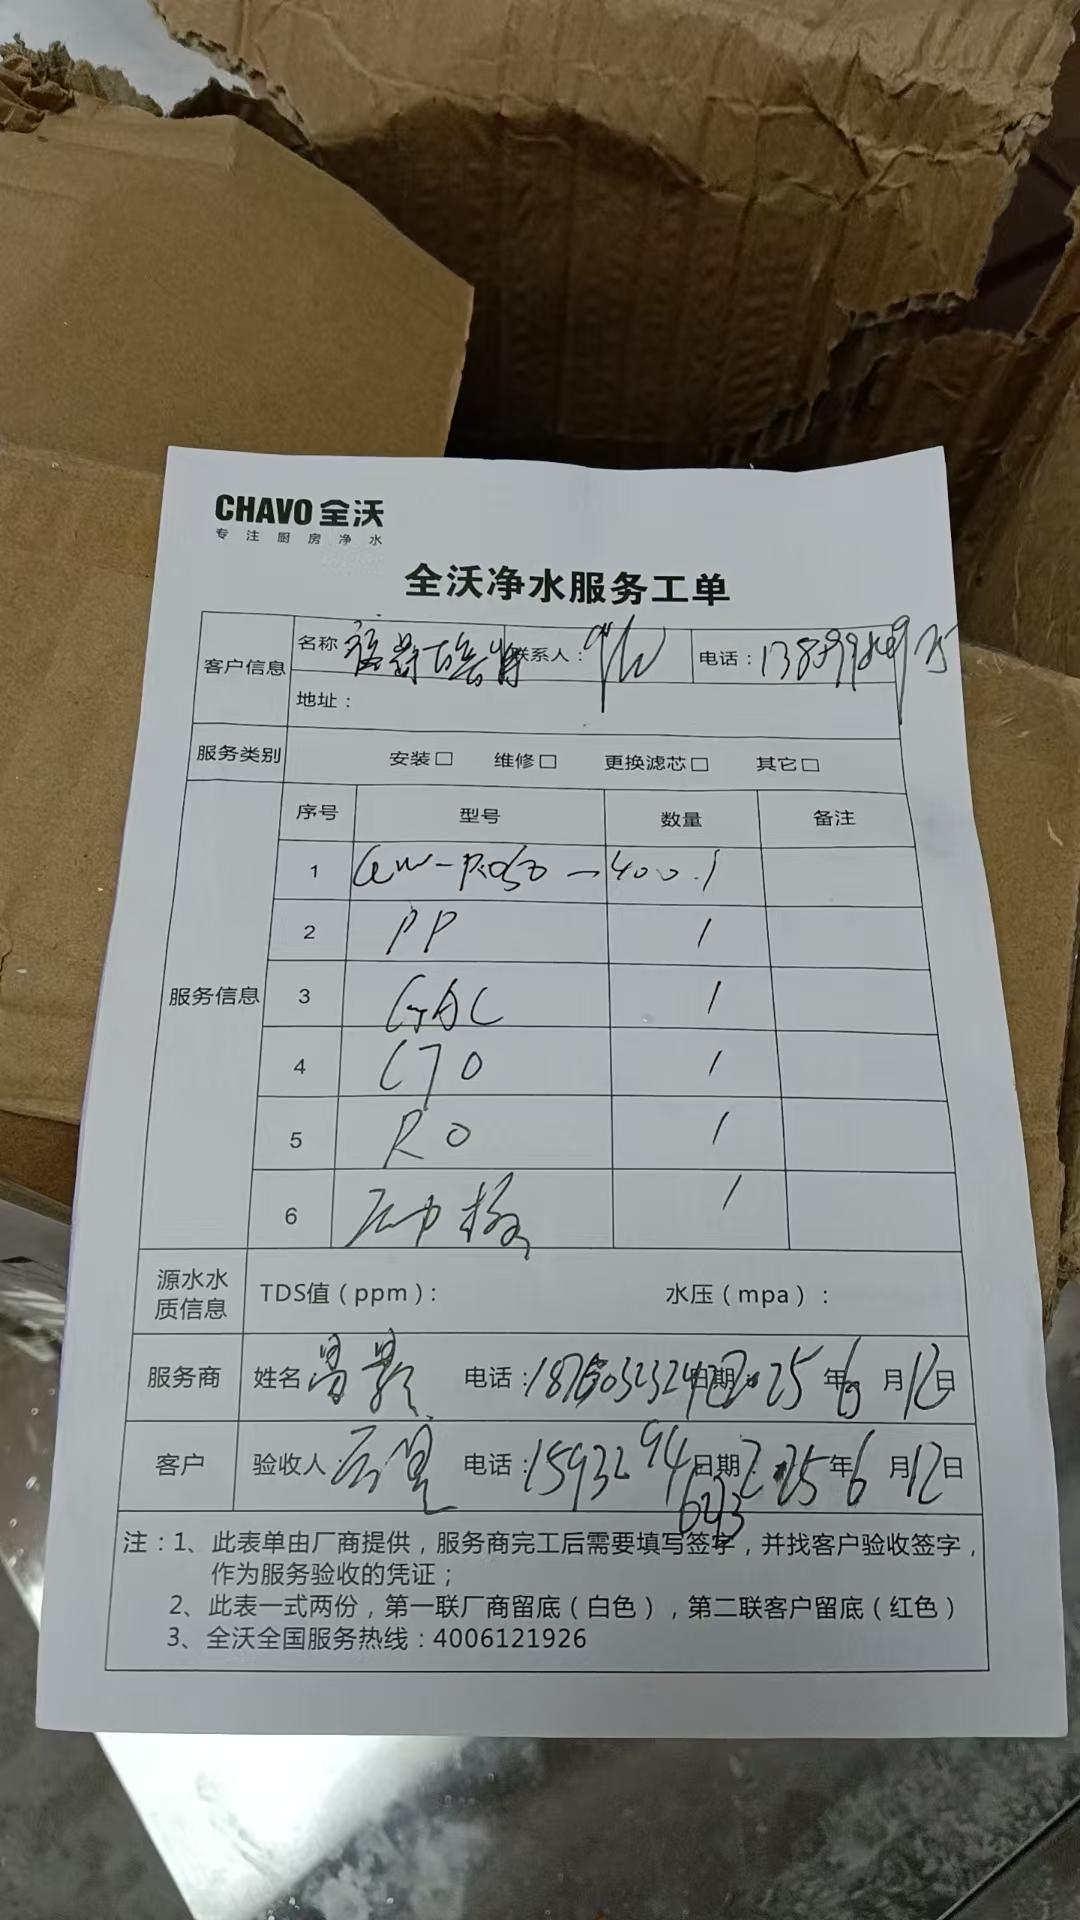 CHAVO 全沃
专注厨房净水
全沃净水服务工单
客户信息 名称 联系人： 电话：
地址：
服务类别 安装□ 维修□ 更换滤芯□ 其它□
服务信息 序号 型号 数量 备注
1 400 1
2 PP 1
3 GAC 1
4 CTO 1
5 RO 1
6 1
源水水质信息 TDS值（ppm）： 水压（mpa）：
服务商 姓名 电话： 日期 2025年6月12日
客户 验收人 电话：15932946243 日期 2025年6月12日
注：1、此表单由厂商提供，服务商完工后需要填写签字，并找客户验收签字，
作为服务验收的凭证；
2、此表一式两份，第一联厂商留底（白色），第二联客户留底（红色）
3、全沃全国服务热线：4006121926